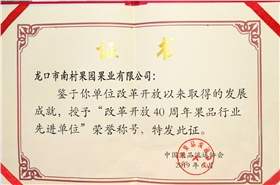 证书
龙口市南村果园果业有限公司：
鉴于你单位改革开放以来取得的发展
成就，授予“改革开放40周年果品行业
先进单位”荣誉称号，特发此证。
中国果品流通协会